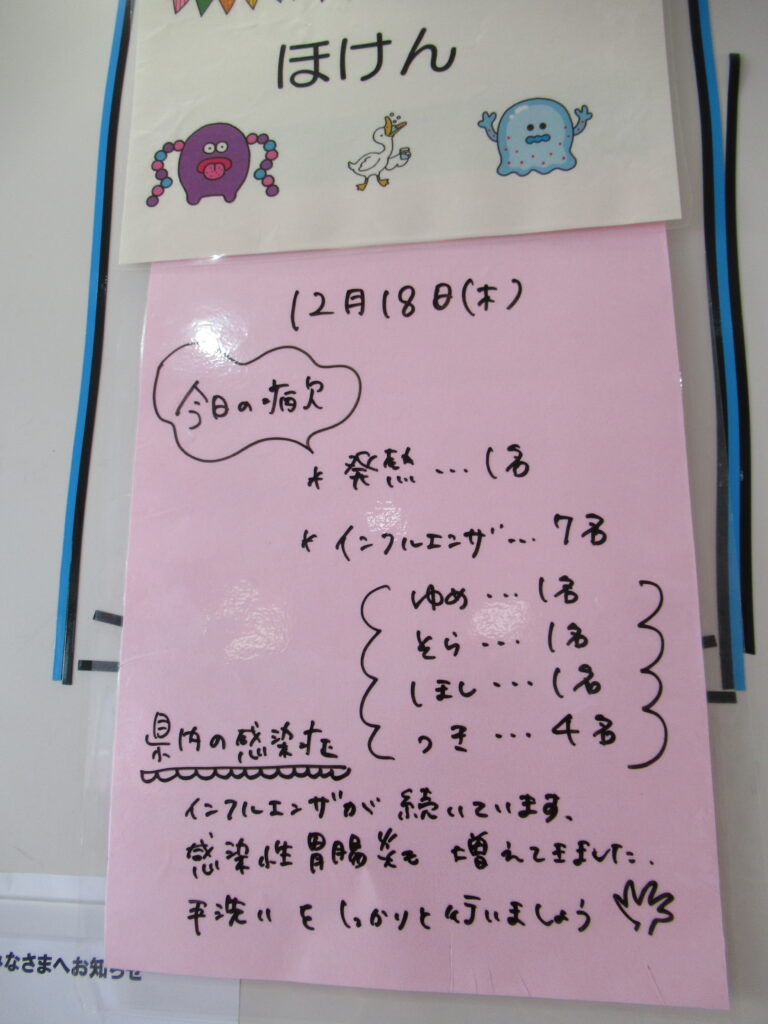 ほけん
12月18日(木)
今日の病欠
* 発熱...1名
* インフルエンザ...7名
ゆめ...1名
そら...1名
ほし...1名
つき...4名
県内の感染症
インフルエンザが続いています、
感染性胃腸炎も増えてきました.
手洗いをしっかりと行いましょう
なさまへお知らせ